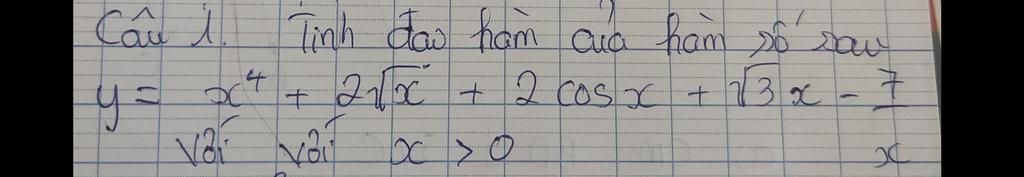 Câu 1. Tính đạo hàm của hàm số sau
y = x⁴ + 2√x + 2 cos x + √3 x - 7/x
với với x > 0